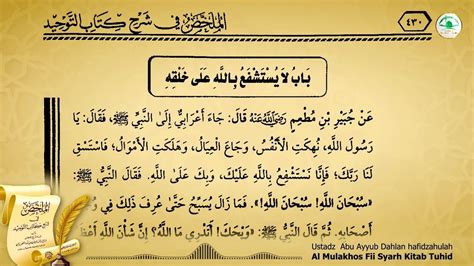 الملخص في شرح كتاب التوحيد
٤٣٠
بَابُ لَا يُسْتَشْفَعُ بِاللَّهِ عَلَى خَلْقِهِ
عَنْ جُبَيْرِ بْنِ مُطْعِمٍ رَضِيَ اللَّهُ عَنْهُ قَالَ: جَاءَ أَعْرَابِيٌّ إِلَى النَّبِيِّ ﷺ، فَقَالَ: يَا
رَسُولَ اللَّهِ، نُهِكَتِ الْأَنْفُسُ، وَجَاعَ الْعِيَالُ، وَهَلَكَتِ الْأَمْوَالُ؛ فَاسْتَسْقِ
لَنَا رَبَّكَ؛ فَإِنَّا نَسْتَشْفِعُ بِاللَّهِ عَلَيْكَ، وَبِكَ عَلَى اللَّهِ. فَقَالَ النَّبِيُّ ﷺ:
«سُبْحَانَ اللَّهِ! سُبْحَانَ اللَّهِ!». فَمَا زَالَ يُسَبِّحُ حَتَّى عُرِفَ ذَلِكَ فِي وُجُوهِ
أَصْحَابِهِ. ثُمَّ قَالَ النَّبِيُّ ﷺ: «وَيْحَكَ! أَتَدْرِي مَا اللَّهُ؟ إِنَّ شَأْنَ اللَّهِ أَعْظَمُ
الملخص
Ustadz Abu Ayyub Dahlan hafidzahulah
Al Mulakhos Fii Syarh Kitab Tuhid